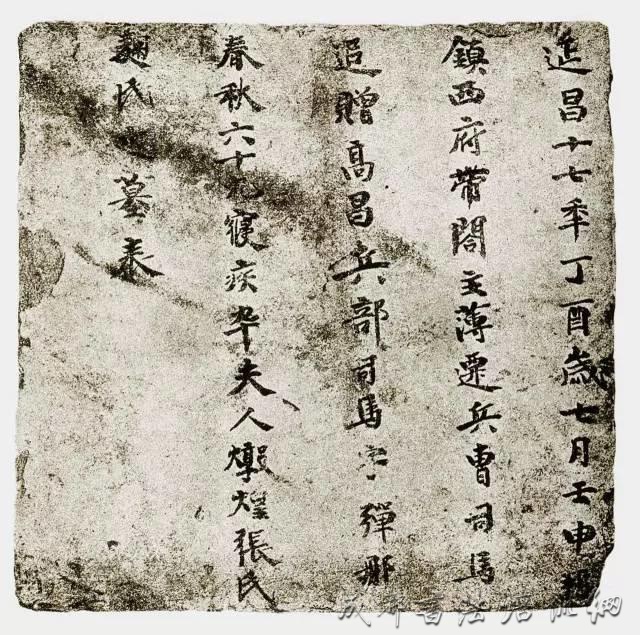 延昌十七年丁酉歲七月壬申朔
鎮西府帶閤主薄遷兵曹司馬
追贈高昌兵部司馬字彈那
春秋六十九寢疾卒夫人燉煌張氏
麴氏墓表